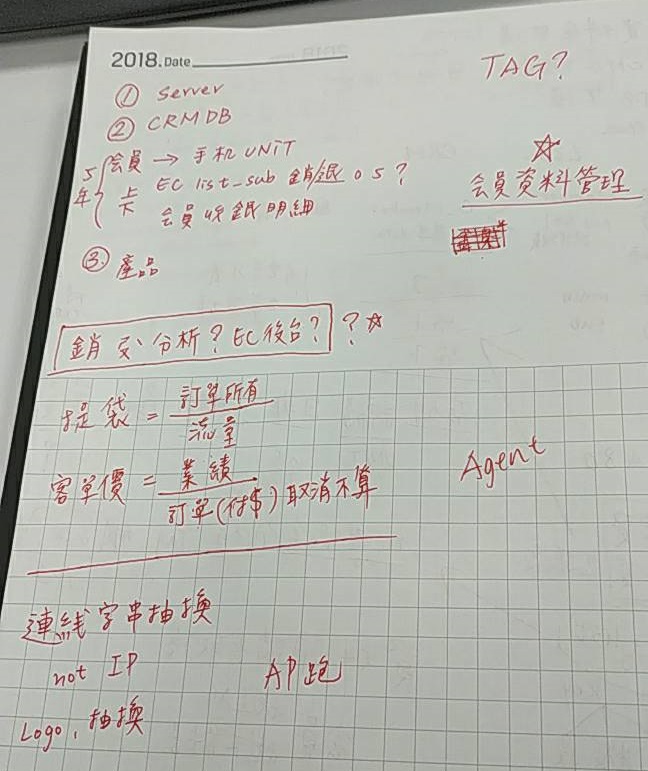 2018. Date
TAG?
① Server
② CRMDB
5年 会員 → 手机 UNIT
卡 EC list_sub 銷 05?
会員 收銀明細
☆
会員資料管理
③ 產品
銷 分析? EC後台? ? ☆
提袋 = 訂單所有 / 流量
客單價 = 業績 / 訂單(付$) 取消不算
Agent
連线字串抽換
not IP
AP跑
Logo, 抽換